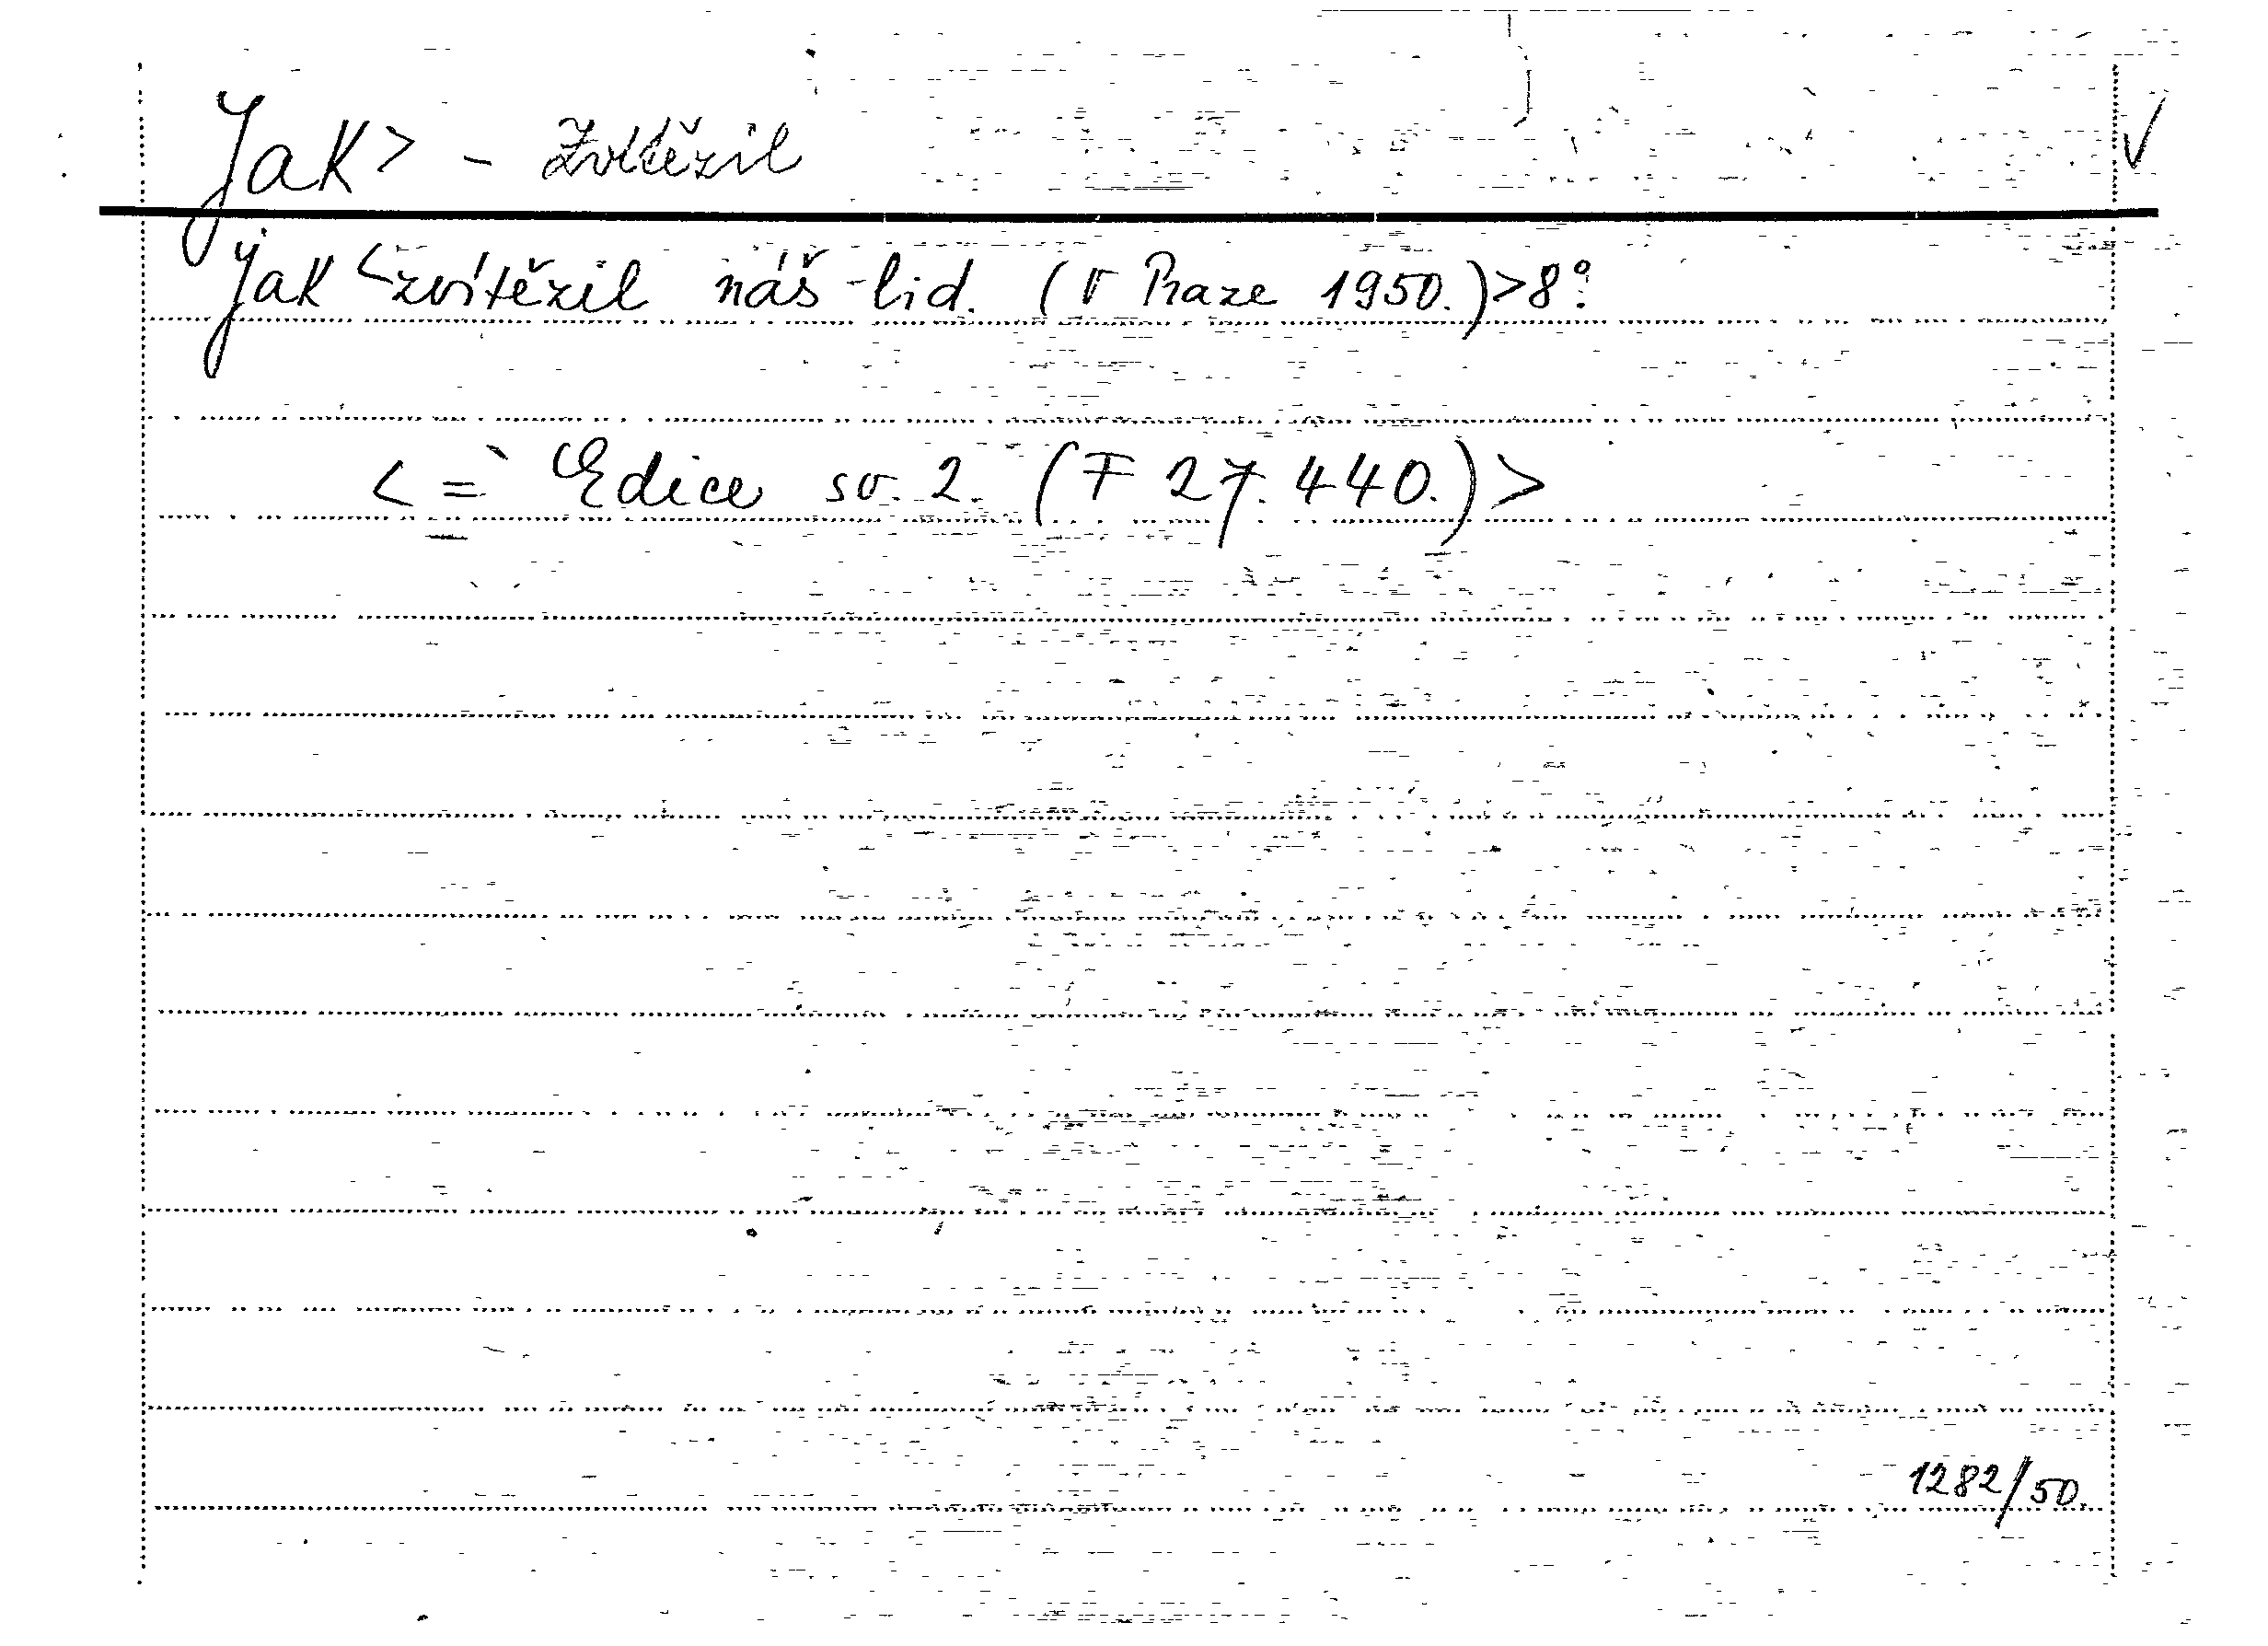 Jak> - Zvítězil
Jak <zvítězil náš lid. (V Praze 1950.)>8°.
<= Edice sv. 2. (F 27.440.)>
1282/50.